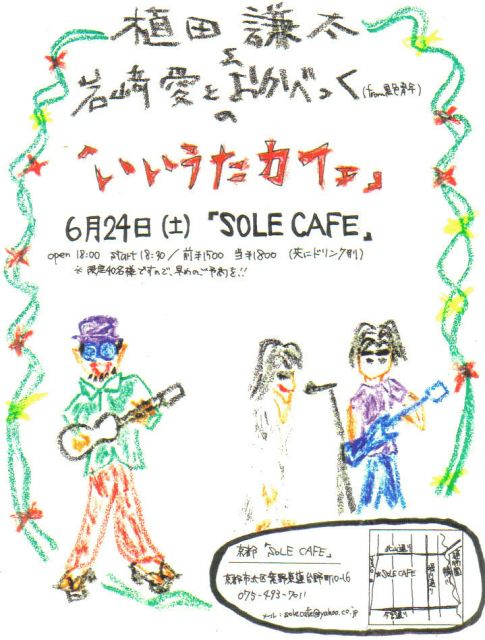 植田 謙太
と
岩崎愛とおかべっく
の
「いいうたカフェ」
6月24日(土)「SOLE CAFE」
open 18:00 start 18:30/前¥1500 当¥1800 (共にドリンク別)
※限定40名様ですので、早めのご予約を!!
京都「SOLE CAFE」
京都市北区紫野東蓮台野町10-16
075-493-7011
メール:solecafe@yahoo.co.jp
北山通り
SOLE CAFE
今宮通り